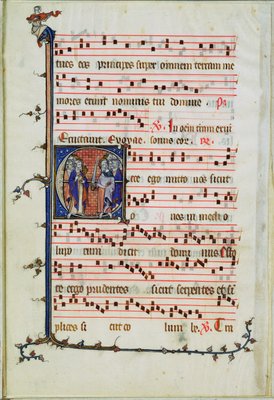 tues eos principes super omnem terram me
mores erunt nominis tui domine. Ps.
V. In omnem
Eructavit. Evovae. sonus eor. R.
cce ego mitto vos sicut
o ves in medio
lupo rum dicit dominus Esto
te ergo prudentes sicut serpentes et si
plices si cut co lumbe. V.